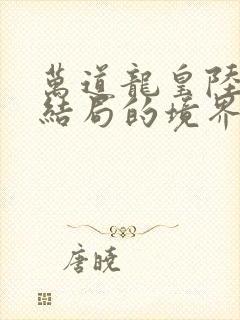 萬道龍皇陸
結局的境界
唐曉